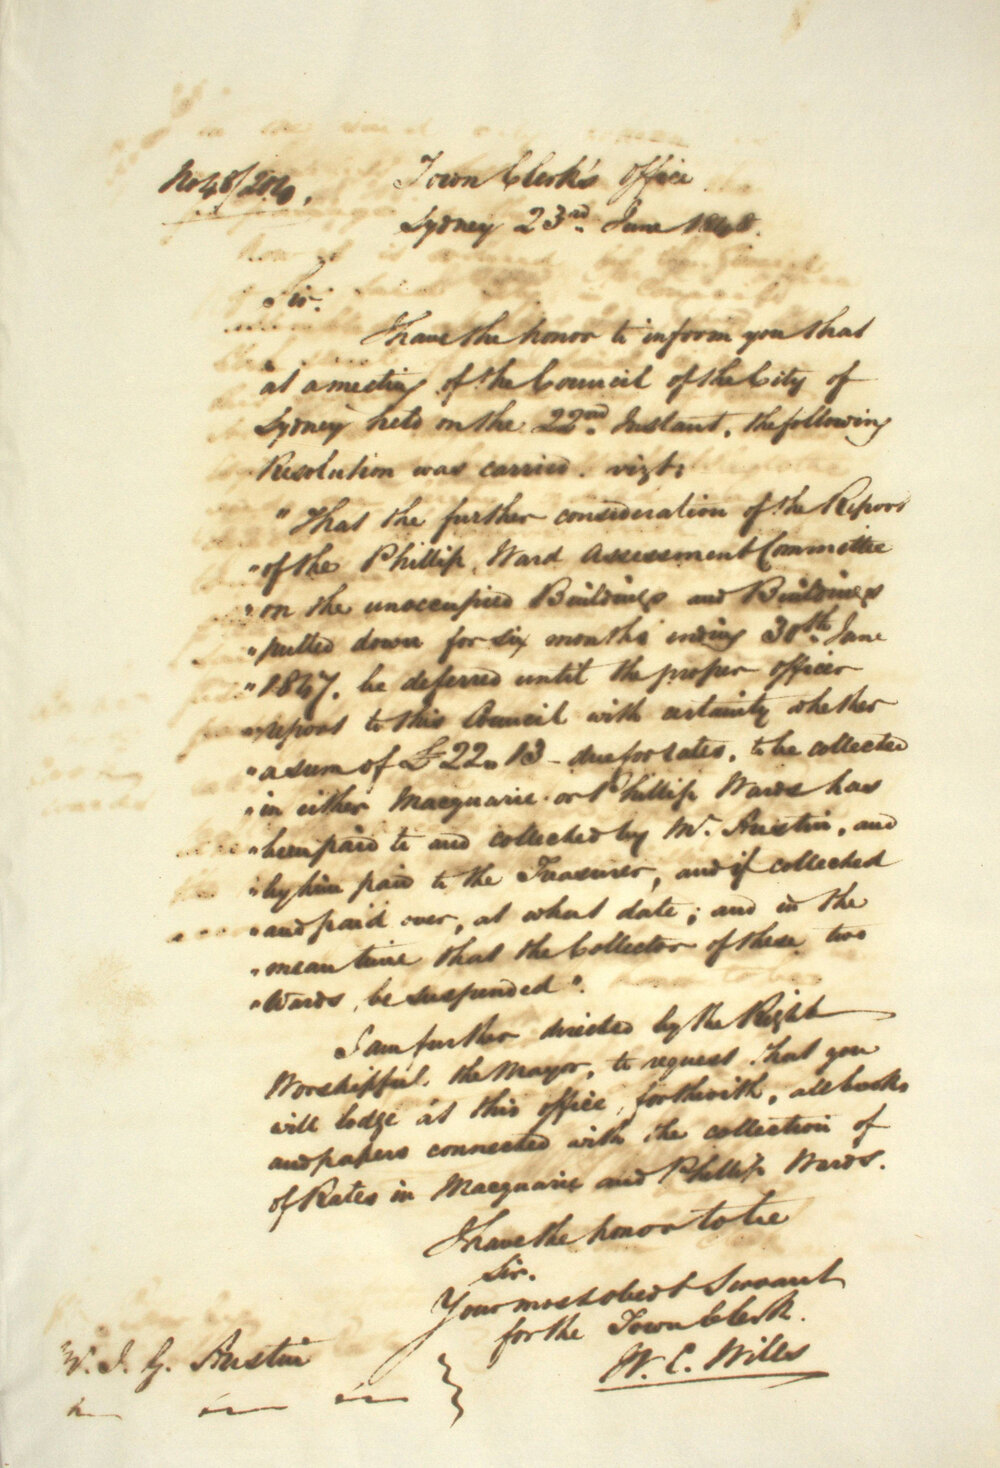 No 48/204.
Town Clerk's Office
Sydney 23rd. June 1848.
Sir.
I have the honor to inform you that
at a meeting of the Council of the City of
Sydney held on the 22nd. Instant, the following
Resolution was carried. vizt.
"That the further consideration of the Report
"of the Phillip Ward Assessment Committee
"on the unoccupied Buildings and Buildings
"pulled down for six months ending 30th. June
"1847. be deferred until the proper officer
"report to this Council with certainty whether
"a sum of £22.13 - due for rates, to be collected
"in either Macquarie or Phillip Wards has
"been paid to and collected by Mr. Austin, and
"by him paid to the Treasurer, and if collected
"and paid over, at what date; and in the
"mean time that the Collector of these two
"Wards, be suspended".
I am further directed by the Right
Worshipful, the Mayor, to request that you
will lodge at this office, forthwith, all books
and papers connected with the collection of
of Rates in Macquarie and Phillip Wards.
I have the honor to be
Sir.
Your most obedt Servant
for the Town Clerk.
W. C. Wills
J. G. Austin